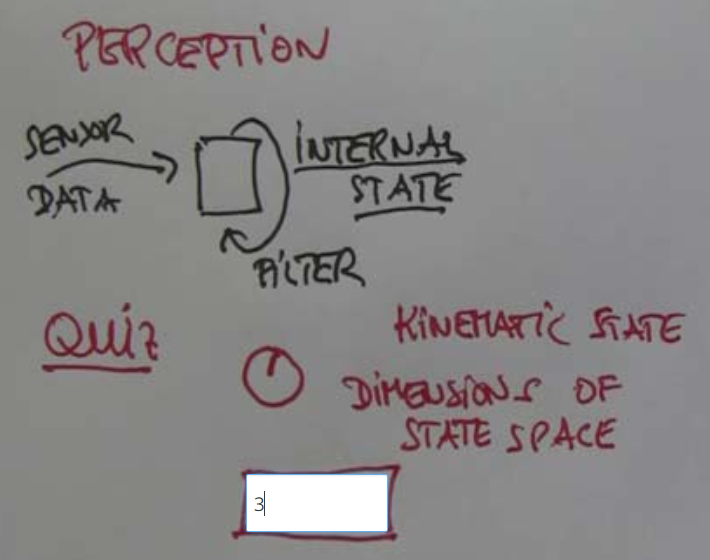 PERCEPTION
SENSOR
DATA
INTERNAL
STATE
FILTER
QUIZ
KINEMATIC STATE
DIMENSIONS OF
STATE SPACE
3